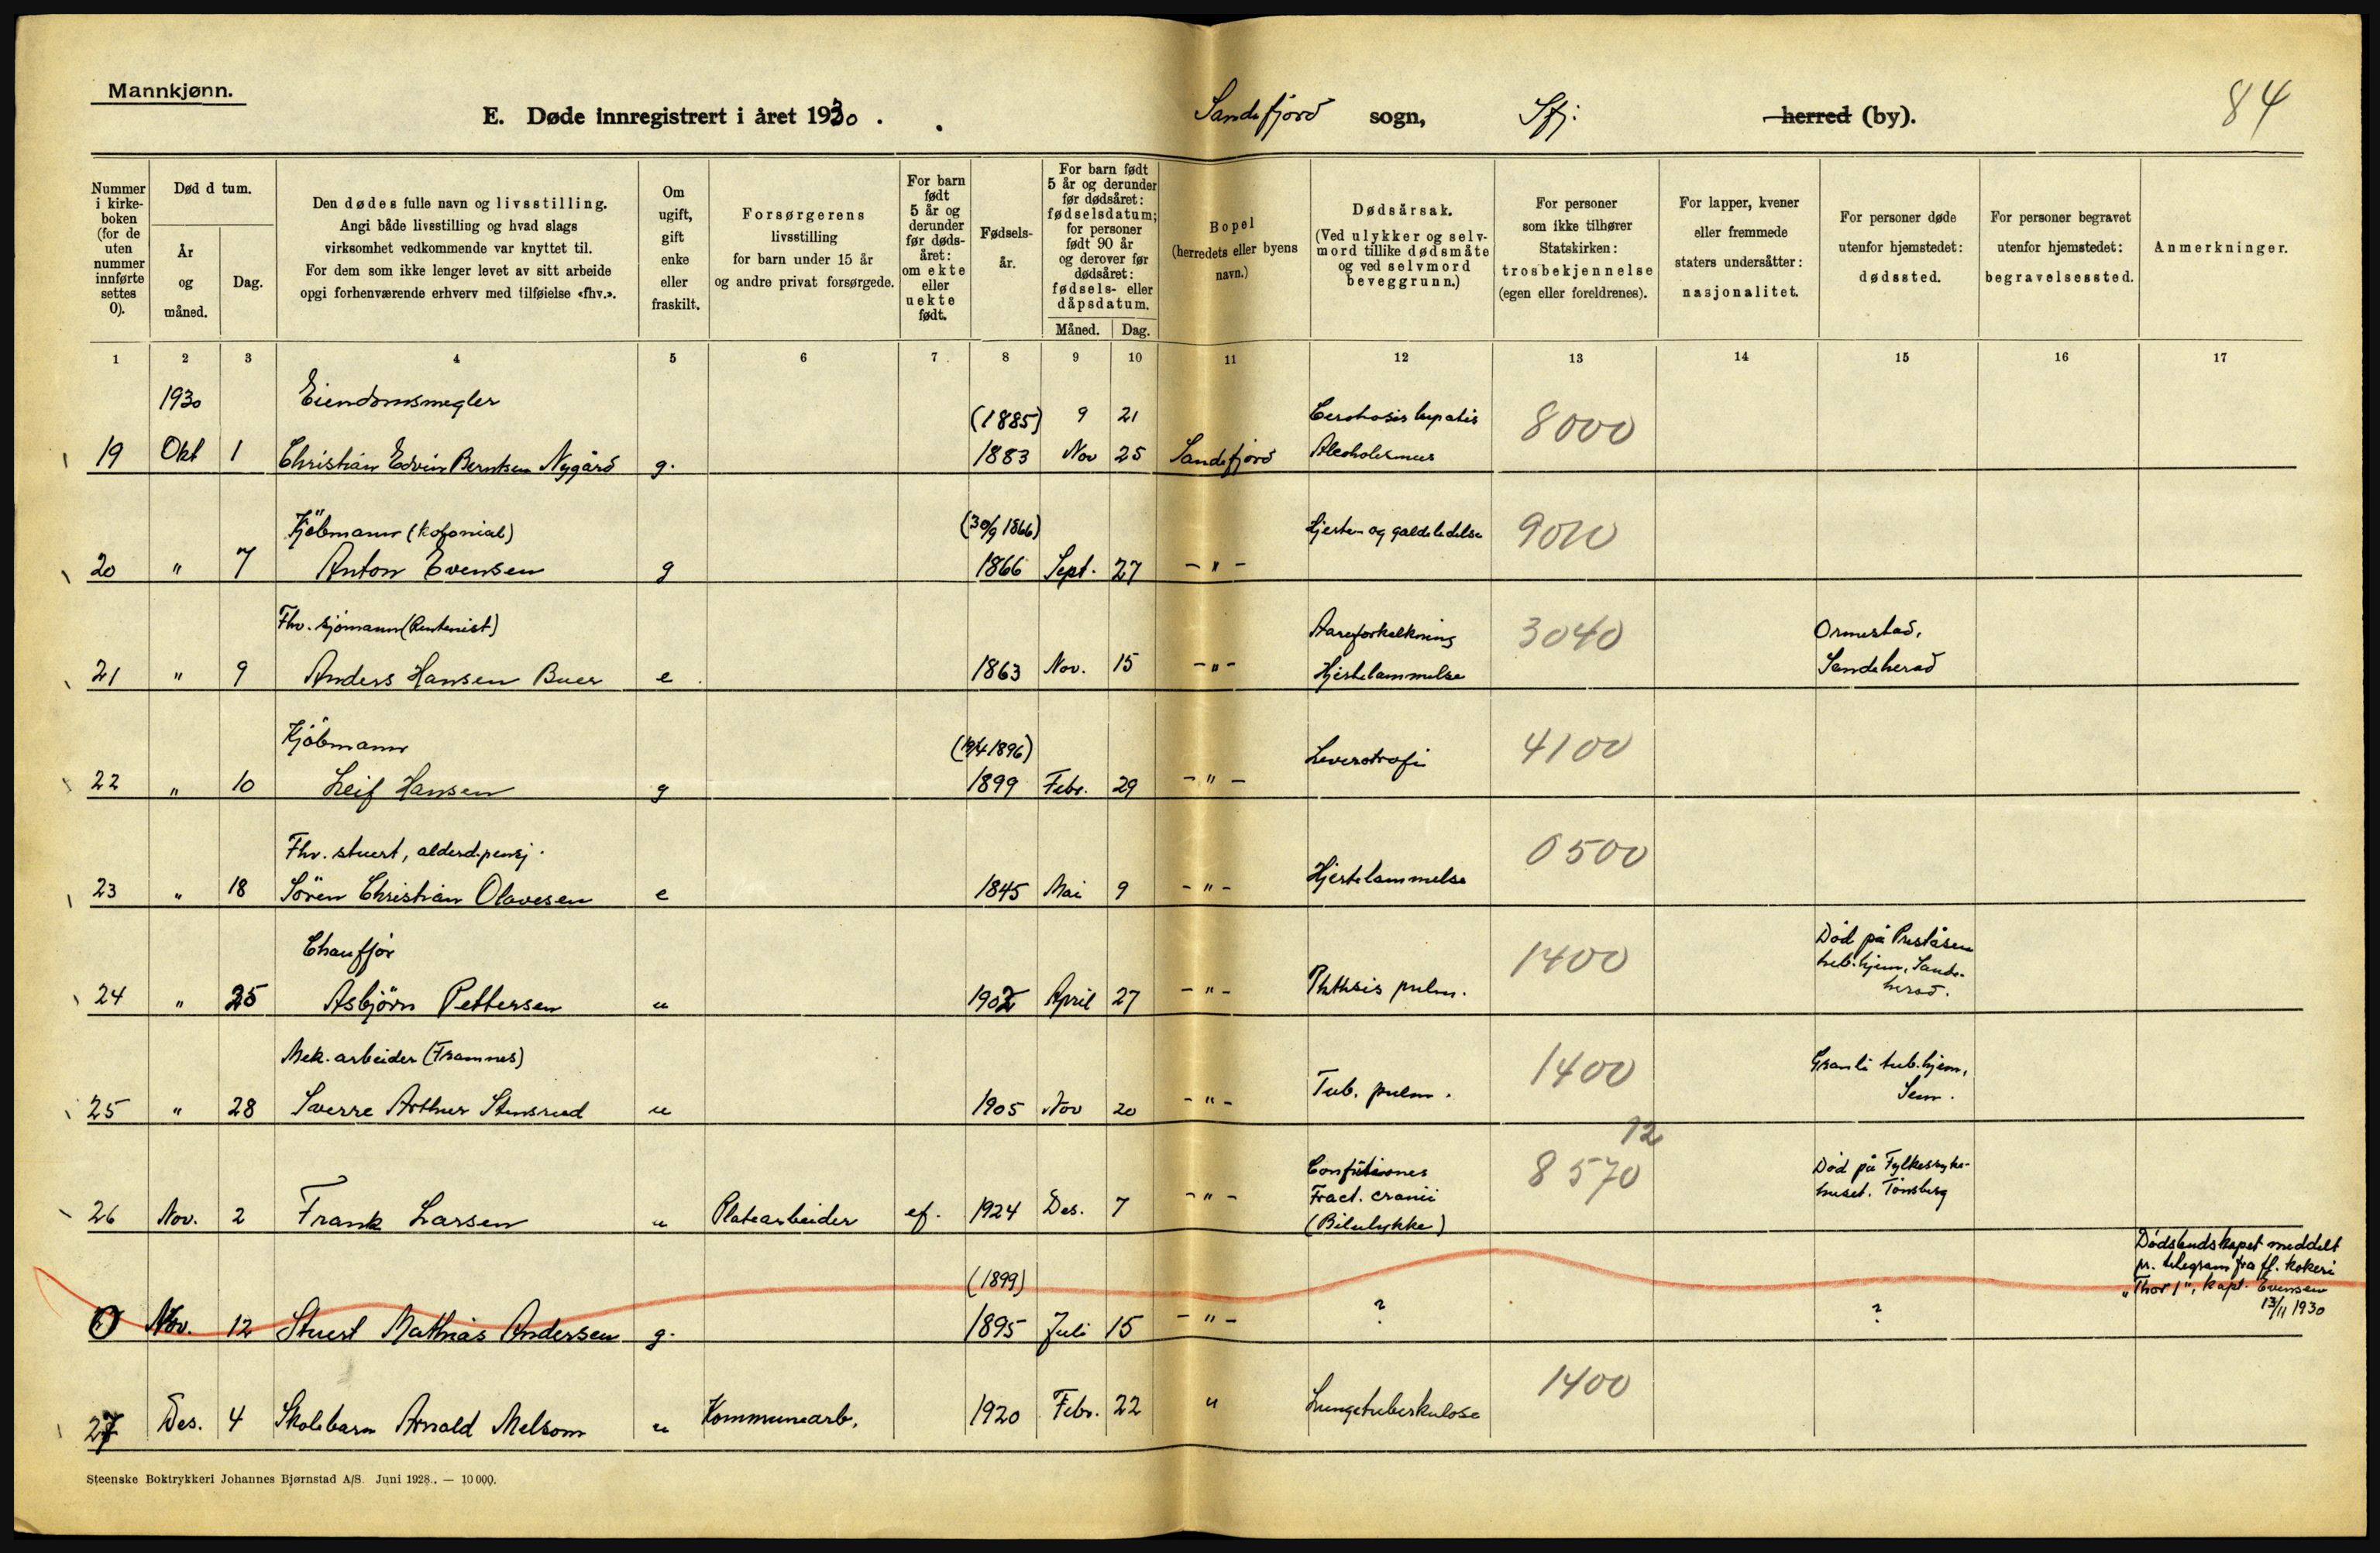 Mannkjønn.
E. Døde innregistrert i året 1930.
Sandefjord sogn, Sfj: herred (by).
84
Nummer i kirke-boken (for de uten nummer innførte settes 0).
Død d tum.
År og måned.
Dag.
Den dødes fulle navn og livsstilling.
Angi både livsstilling og hvad slags
virksomhet vedkommende var knyttet til.
For dem som ikke lenger levet av sitt arbeide
opgi forhenværende erhverv med tilføielse «fhv.».
Om ugift, gift enke eller fraskilt.
Forsørgerens
livsstilling
for barn under 15 år
og andre privat forsørgede.
For barn født 5 år og derunder før døds-året: om ekte eller uekte født.
Fødsels-år.
For barn født 5 år og derunder før dødsåret: fødselsdatum; for personer født 90 år og derover før dødsåret: fødsels- eller dåpsdatum.
Måned. Dag.
Bopel
(herredets eller byens
navn.)
Dødsårsak.
(Ved ulykker og selv-
mord tillike dødsmåte
og ved selvmord
beveggrunn.)
For personer
som ikke tilhører
Statskirken:
trosbekjennelse
(egen eller foreldrenes).
For lapper, kvener
eller fremmede
staters undersåtter:
nasjonalitet.
For personer døde
utenfor hjemstedet:
dødssted.
For personer begravet
utenfor hjemstedet:
begravelsessted.
Anmerkninger.
1 2 3 4 5 6 7 8 9 10 11 12 13 14 15 16 17
1930 Eiendomsmegler (1885) 9 21 hepatis 8000
19 Okt 1 Christian Edvin Berntsen Nygård g. 1883 Nov 25 Sandefjord Alcoholismus
Kjöbmann (kolonial) (30/9 1866) Hjerte- og galdeledelse 9010
20 " 7 Anton Evensen g 1866 Sept. 27 - " -
Fhv. sjömann (Rentenist) Aareforkalkning 3040 Ormestad,
21 " 9 Anders Hansen Buer e 1863 Nov. 15 - " - Hjertelammelse Sandeherad
Kjöbmann (19/4 1896) Leveratrofi 4100
22 " 10 Leif Hansen g 1899 Febr. 29 - " -
Fhv. stuert, alderd.pensj. 0500
23 " 18 Sören Christian Olavesen e 1845 Mai 9 - " - Hjertelammelse
Chaufför 1400 Död på Preståsen
tub.hjem, Sande-
herad.
24 " 25 Asbjörn Pettersen u 1902 April 27 - " - Phthisis pulm.
Mek. arbeider (Framnes) 1400 Granli tub.hjem,
25 " 28 Sverre Arthur Stensrud u 1905 Nov 20 - " - Tub. pulm. Sem.
12
8570 Död på Fylkessyke-
Fract. cranii huset. Tönsberg
26 Nov. 2 Frank Larsen u Platearbeider ef. 1924 Des. 7 - " - (Bilulykke)
(1899) Dödsbudskapet meddelt
pr. telegram fra fl. kokeri
"Thor I", kapt. Evensen
13/11 1930
0 Nov. 12 Stuert Mathias Andersen g. 1895 Juli 15 - " - ? ?
1400
27 Des. 4 Skolebarn Arnold Melsom u Kommunearb. 1920 Febr. 22 " Lungetuberkulose
Steenske Boktrykkeri Johannes Bjørnstad A/S. Juni 1928.. — 10 000.